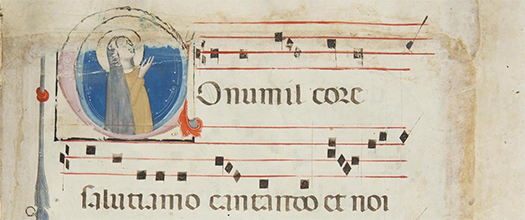 Conumil core
salutiamo cantando et noi